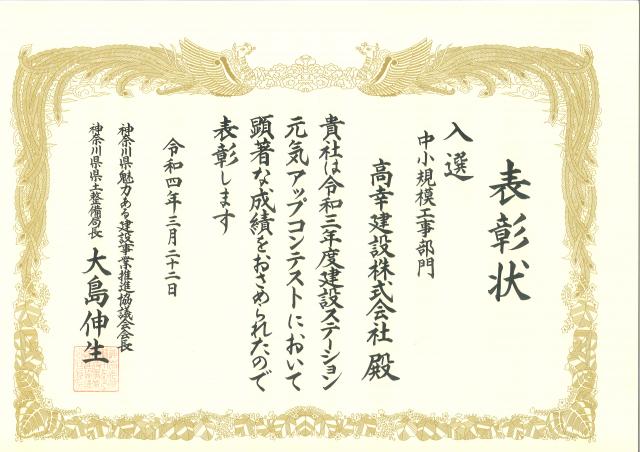 表彰状
入選
中小規模工事部門
高幸建設株式会社 殿
貴社は令和三年度建設ステーション
元気アップコンテストにおいて
顕著な成績をおさめられたので
表彰します
令和四年三月二十二日
神奈川県魅力ある建設事業推進協議会会長
神奈川県県土整備局長 大島伸生